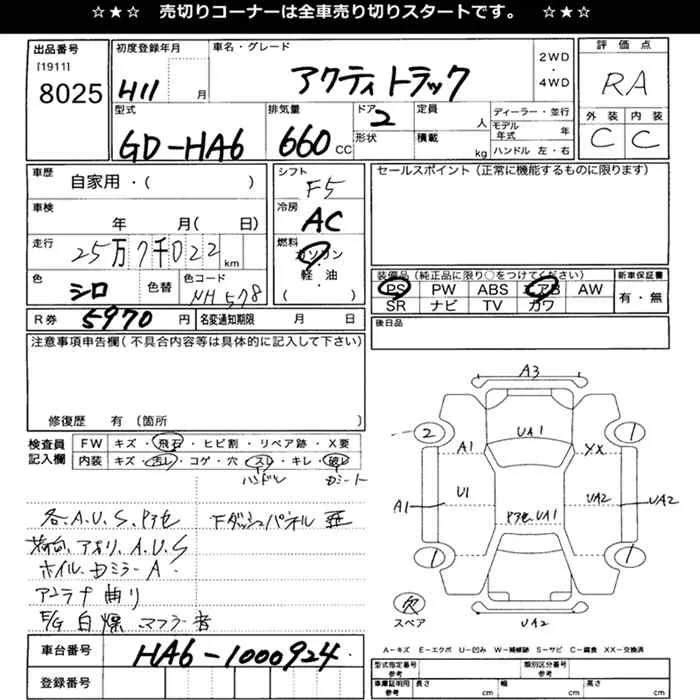 ☆★☆ 売切りコーナーは全車売り切りスタートです。 ☆★☆
出品番号
[1911]
8025
初度登録年月
H11 月
車名・グレード
アクティトラック
2WD
・
4WD
評価点
RA
外装 内装
C C
型式
GD-HA6
排気量
660 CC
ドア
2
形状
定員 人
積載 kg
ディーラー・並行
モデル年式 年
ハンドル 左・右
車歴
自家用・( )
車検
年 月( 日)
走行
25万7千022 km
色
シロ
色替
色コード
NH578
シフト
F5
冷房
AC
燃料
ガソリン
・
軽油
( )
セールスポイント(正常に機能するものに限ります)
装備品(純正品に限り○をつけてください)
PS PW ABS エアB AW
SR ナビ TV カワ
新車保証書
有・無
R券 5970 円
名変通知期限 月 日
後日品
注意事項申告欄(不具合内容等は具体的に記入して下さい)
修復歴 有(箇所 )
検査員
記入欄
FW キズ・飛石・ヒビ割・リペア跡・X要
内装 キズ・汚レ・コゲ・穴・スレ・キレ・破レ
ハンドル
各、A、U、S、Pアセ 下ダッシュパネル
荷台、アオリ、A、U、S
ホイル、Dミラー A
アンテナ曲り
E/G 白煙 マフラー音
A3
2
UA1
1
A1
XX
A1
U1
Pアセ、UA1
UA2
UA2
1
1
欠
スペア
UA2
A−キズ E−エクボ U−凹み W−補修跡 S−サビ C−腐食 XX−交換済
車台番号
HA6-1000924
登録番号
型式指定番号
参考
類別区分番号
参考
車庫証明用
参考
長さ cm 幅 cm 高さ cm